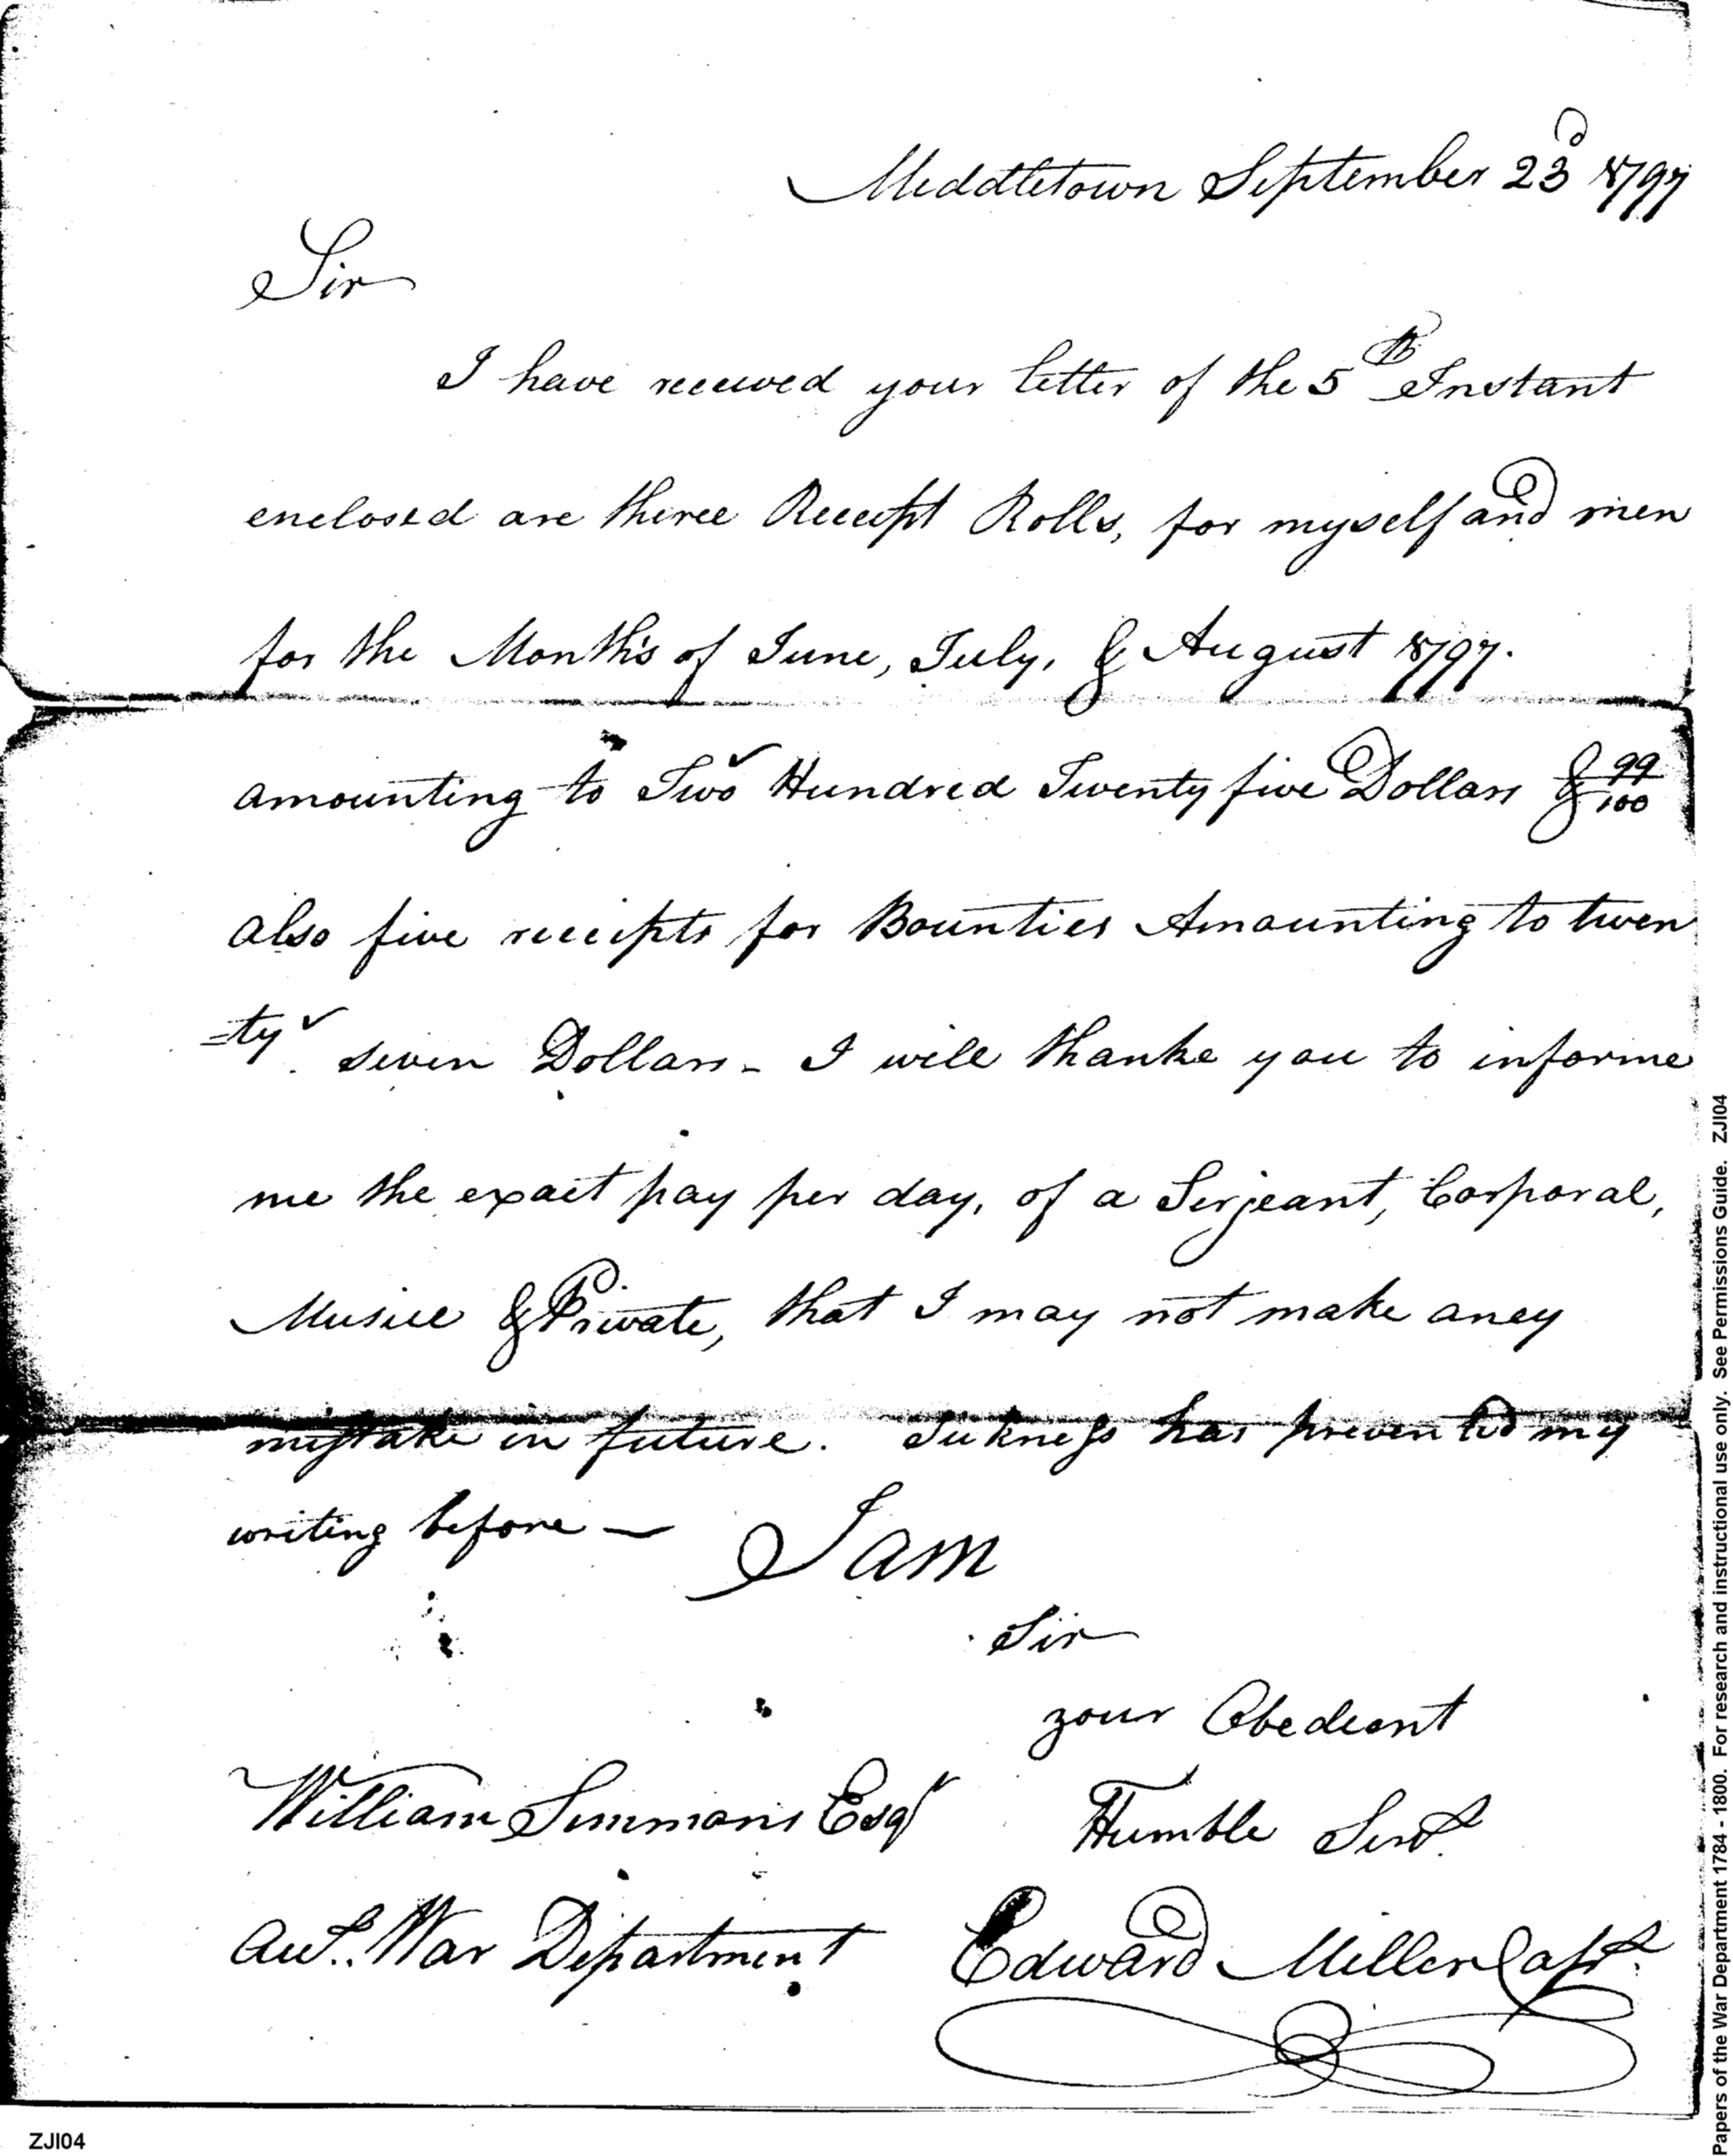 Middletown September 23d 1797
Sir
I have received your letter of the 5th Instant
enclosed are three Receipt Rolls, for myself and men
for the Months of June, July, & August 1797.
amounting to Two Hundred Twenty five Dollars & 99/100
also five receipts for Bounties Amounting to twen
=ty seven Dollars - I will thanke you to informe
me the exact pay per day, of a Serjeant, Corporal,
Musice & Private, that I may not make aney
mistake in future. Sickness has prevented my
writing before — I am
Sir
your Obedient
William Simmons Esqr Humble Servt
Acct. War Department Edward Miller Capt.
ZJI04
Papers of the War Department 1784 - 1800. For research and instructional use only. See Permissions Guide. ZJI04